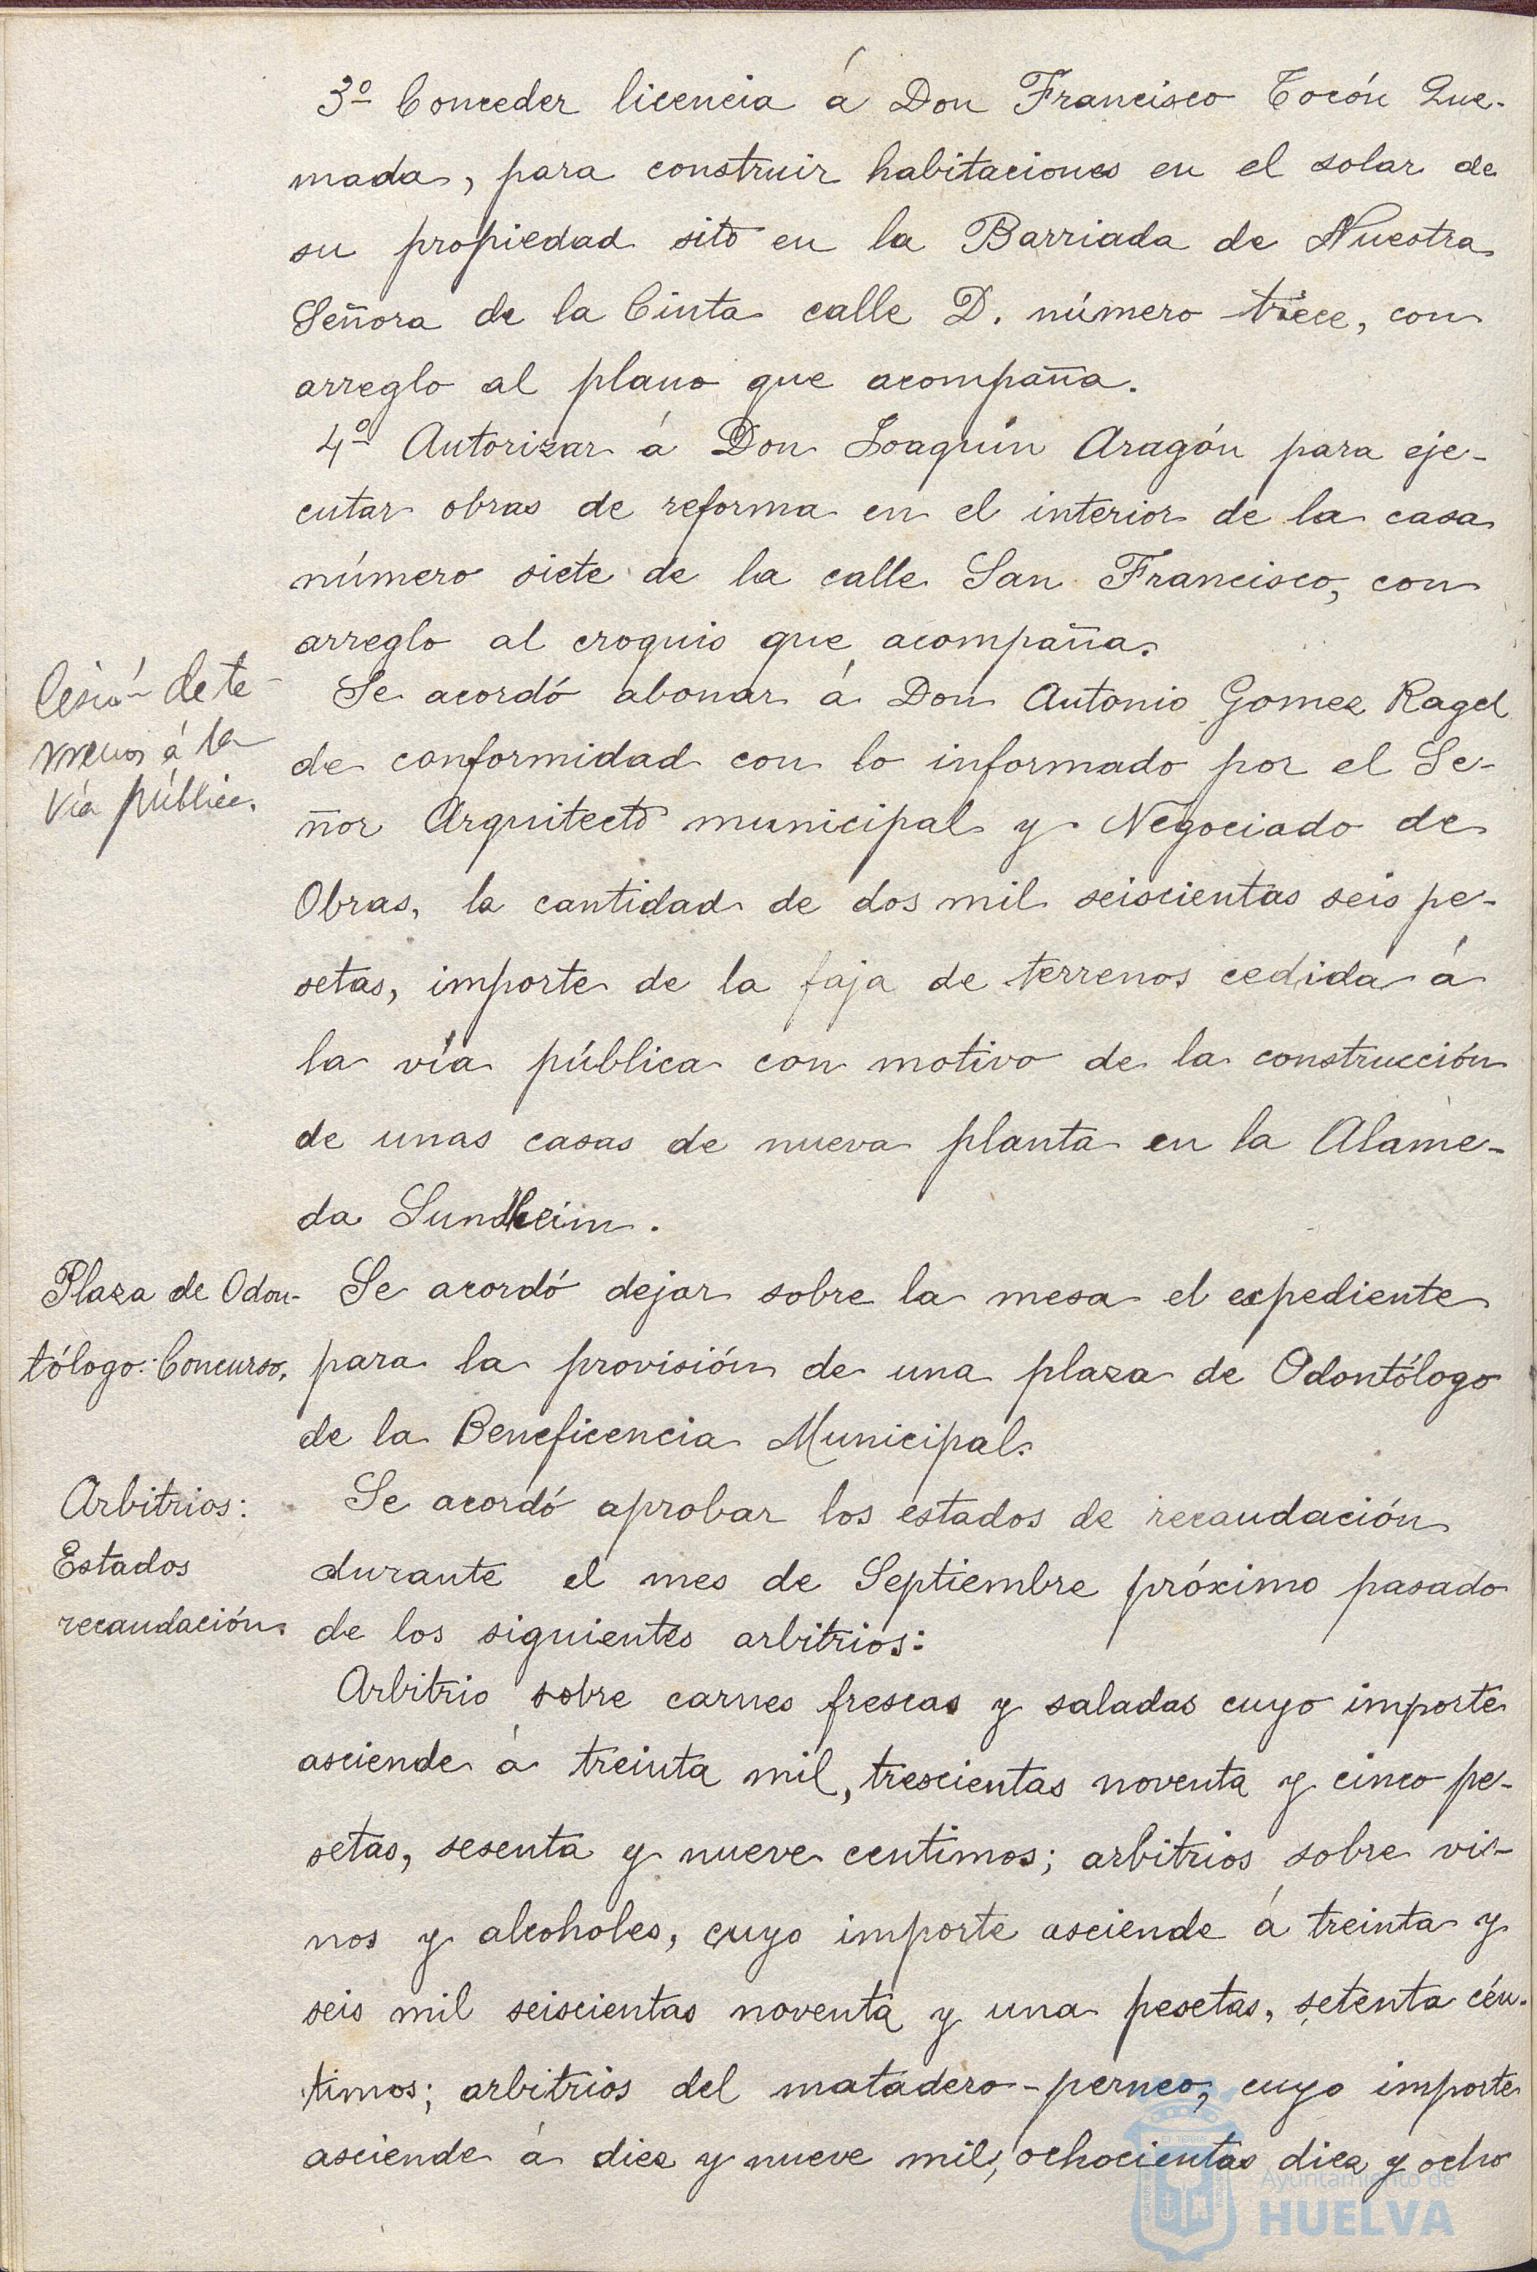 3º Conceder licencia á Don Francisco Tocón Que-
mada, para construir habitaciones en el solar de
su propiedad sito en la Barriada de Nuestra
Señora de la Cinta calle D. número trece, con
arreglo al plano que acompaña.
4º Autorizar á Don Joaquín Aragón para eje-
cutar obras de reforma en el interior de la casa
número siete de la calle San Francisco, con
arreglo al croquis que acompaña.
Cesión de te-
rrenos á la
vía pública.
Se acordó abonar á Don Antonio Gomez Ragel
de conformidad con lo informado por el Se-
ñor Arquitecto municipal y Negociado de
Obras, la cantidad de dos mil seiscientas seis pe-
setas, importe de la faja de terrenos cedida á
la vía pública con motivo de la construcción
de unas casas de nueva planta en la Alame-
da Sundheim.
Plaza de Odon-
tólogo: Concurso.
Se acordó dejar sobre la mesa el expediente
para la provisión de una plaza de Odontólogo
de la Beneficencia Municipal.
Arbitrios:
Estados
recaudación.
Se acordó aprobar los estados de recaudación
durante el mes de Septiembre próximo pasado
de los siguientes arbitrios:
Arbitrio sobre carnes frescas y saladas cuyo importe
asciende á treinta mil, trescientas noventa y cinco pe-
setas, sesenta y nueve centimos; arbitrios sobre vi-
nos y alcoholes, cuyo importe asciende á treinta y
seis mil seiscientas noventa y una pesetas, setenta cén-
timos; arbitrios del matadero-perneo, cuyo importe
asciende á diez y nueve mil, ochocientas diez y ocho
Ayuntamiento de
HUELVA